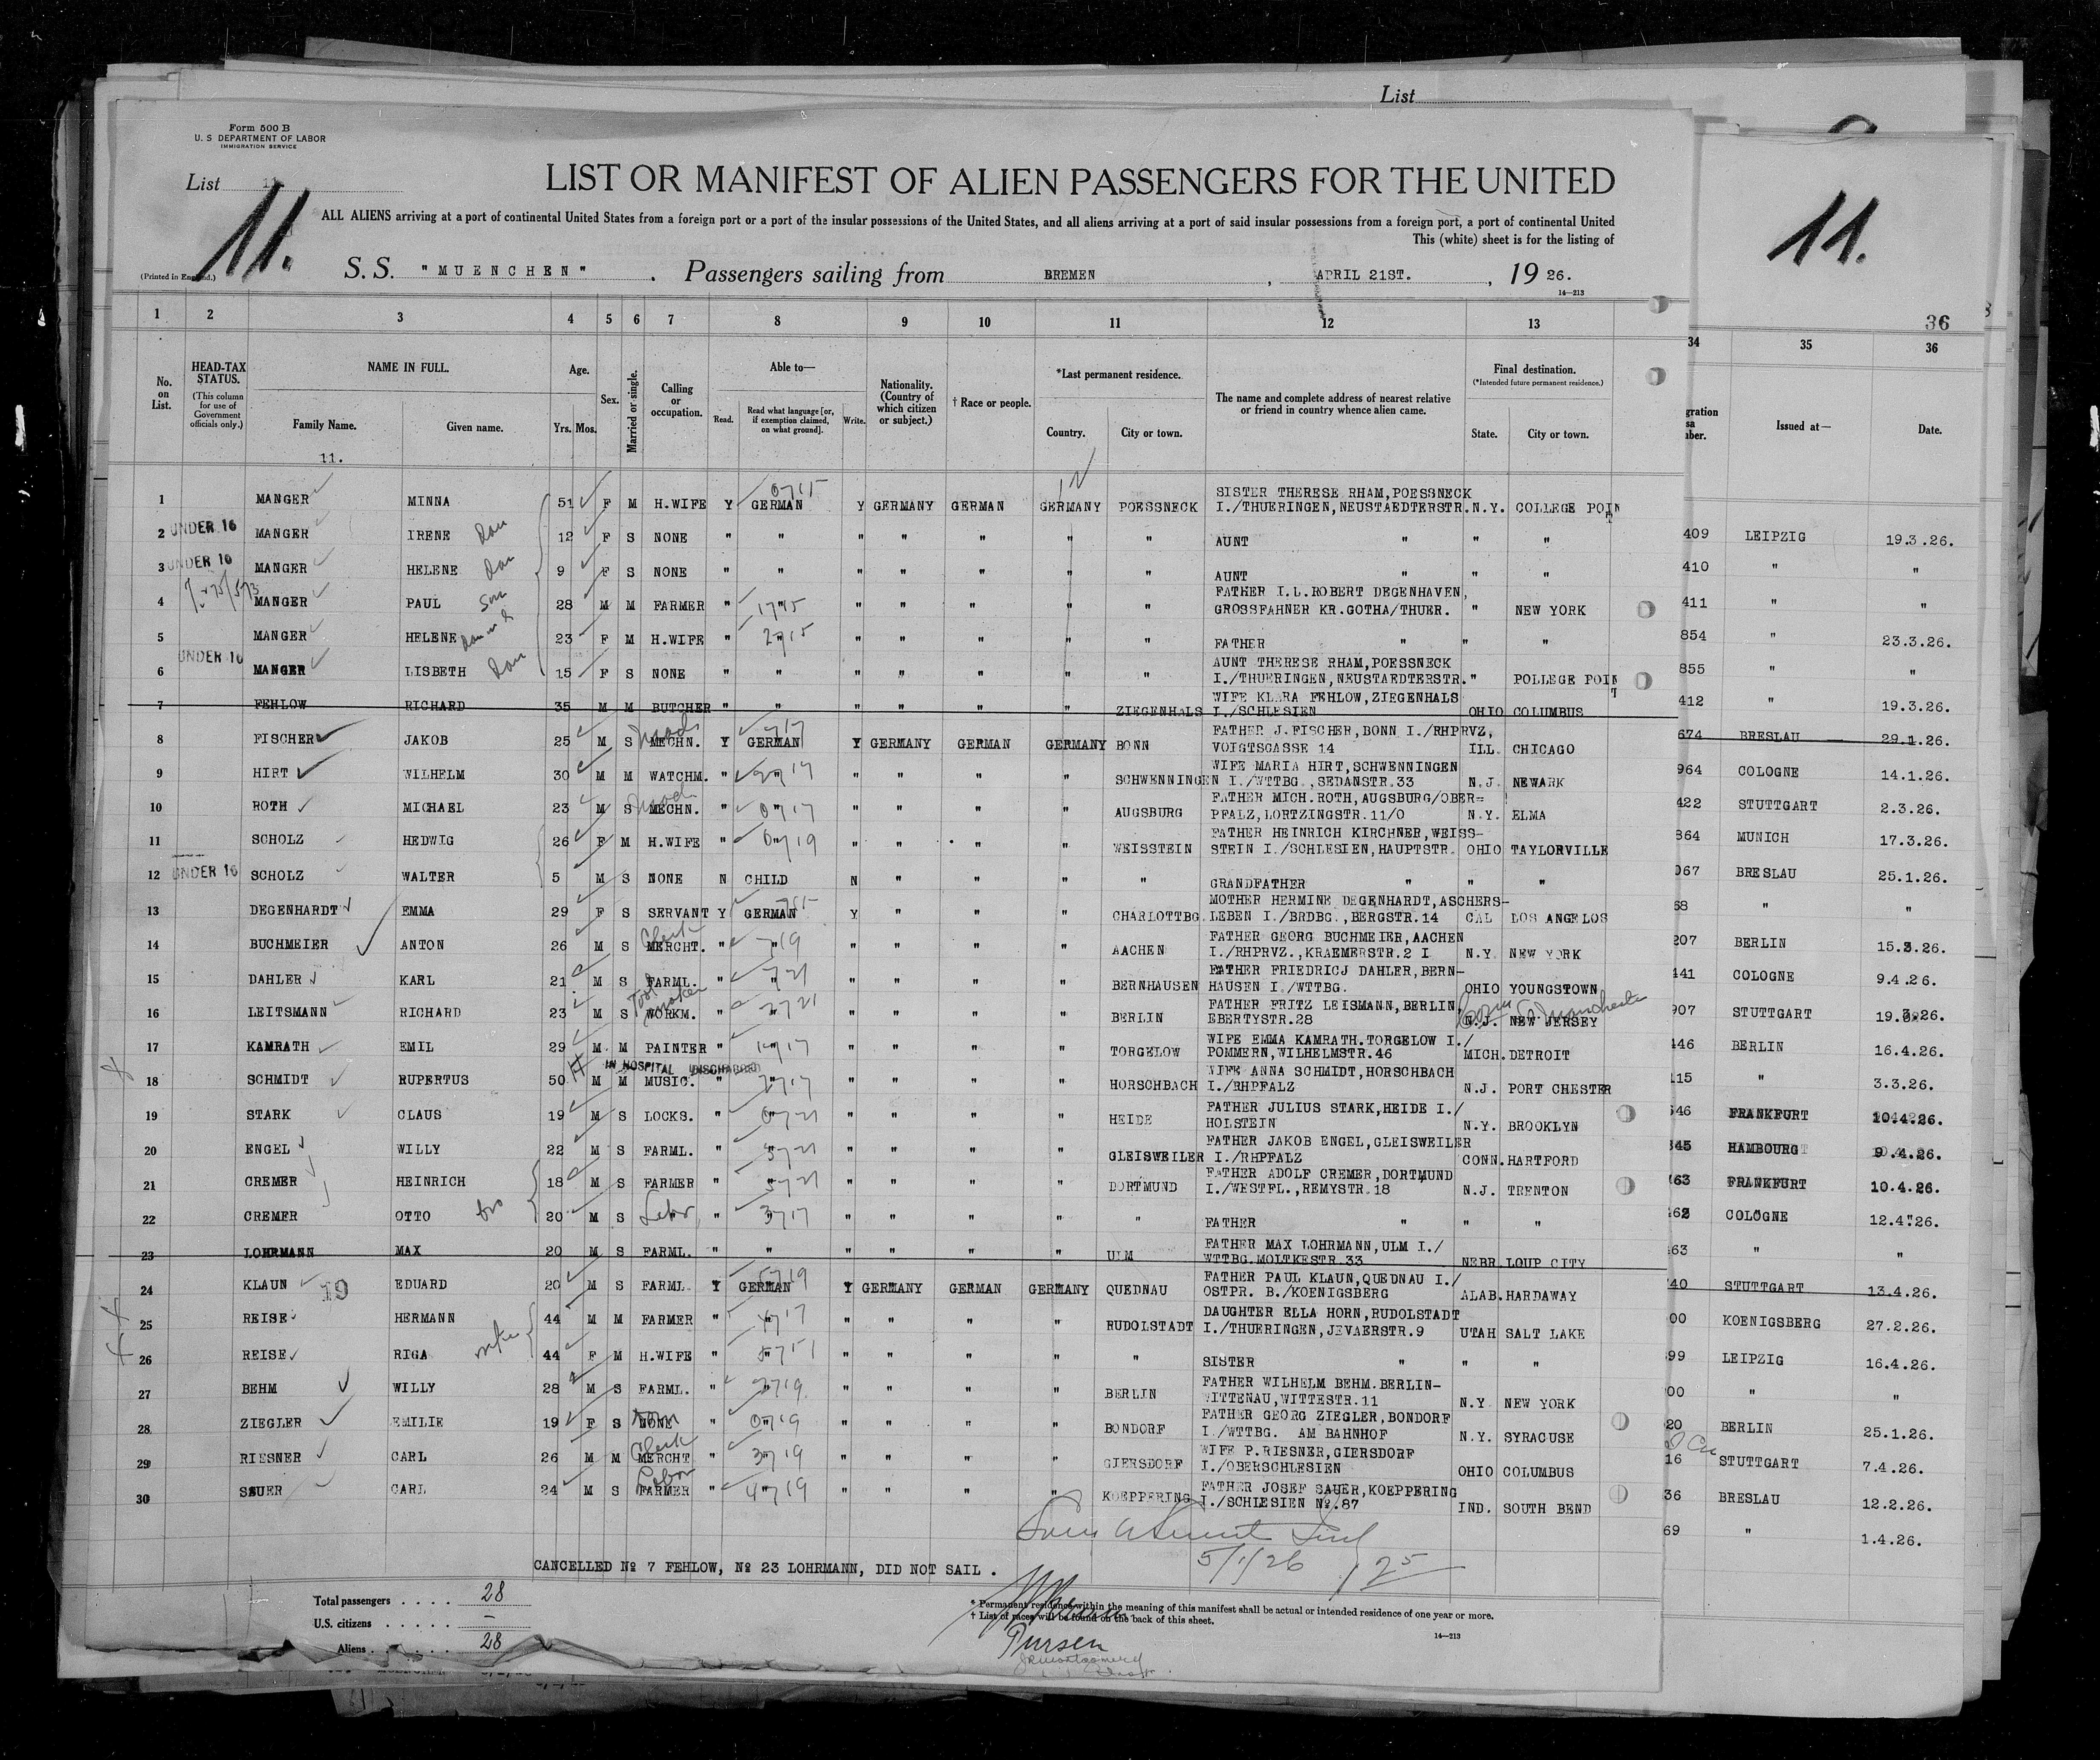 List
Form 500 B
U. S DEPARTMENT OF LABOR
IMMIGRATION SERVICE
List 11
11.
LIST OR MANIFEST OF ALIEN PASSENGERS FOR THE UNITED
ALL ALIENS arriving at a port of continental United States from a foreign port or a port of the insular possessions of the United States, and all aliens arriving at a port of said insular possessions from a foreign port, a port of continental United
This (white) sheet is for the listing of
11.
(Printed in England.)
S. S. "MUENCHEN" . Passengers sailing from BREMEN , APRIL 21ST. , 19 26.
14—213
36
1 2 3 4 5 6 7 8 9 10 11 12 13 34 35 36
No. on List. HEAD-TAX STATUS. (This column for use of Government officials only.) NAME IN FULL. Family Name. Given name. Age. Yrs. Mos. Sex. Married or single. Calling or occupation. Able to— Read. Read what language [or, if exemption claimed, on what ground]. Write. Nationality. (Country of which citizen or subject.) † Race or people. *Last permanent residence. Country. City or town. The name and complete address of nearest relative or friend in country whence alien came. Final destination. (*Intended future permanent residence.) State. City or town. Issued at— Date.
11.
1 MANGER MINNA 51 F M H.WIFE Y GERMAN Y GERMANY GERMAN GERMANY POESSNECK SISTER THERESE RHAM, POESSNECK I./THUERINGEN, NEUSTAEDTERSTR. N.Y. COLLEGE POINT
2 UNDER 16 MANGER IRENE Dau 12 F S NONE " " " " " " " AUNT " " " 409 LEIPZIG 19.3.26.
3 UNDER 16 MANGER HELENE Dau 9 F S NONE " " " " " " " AUNT " " " 410 " "
4 MANGER PAUL Son 28 M M FARMER " " " " " " " FATHER I.L.ROBERT DEGENHAVEN, GROSSFAHNER KR.GOTHA/THUER. " NEW YORK 411 " "
5 MANGER HELENE 23 F M H.WIFE " " " " " " " FATHER " " " 854 " 23.3.26.
6 UNDER 16 MANGER LISBETH Dau 15 F S NONE " " " " " " " AUNT THERESE RHAM, POESSNECK I./THUERINGEN, NEUSTAEDTERSTR. " POLLEGE POINT 855 " "
7 FEHLOW RICHARD 35 M M BUTCHER " " " " " " ZIEGENHALS WIFE KLARA FEHLOW, ZIEGENHALS I./SCHLESIEN OHIO COLUMBUS 412 " 19.3.26.
8 FISCHER JAKOB 25 M S MECHN. Y GERMAN Y GERMANY GERMAN GERMANY BONN FATHER J.FISCHER, BONN I./RHPRVZ, VOIGTSGASSE 14 ILL. CHICAGO 674 BRESLAU 29.1.26.
9 HIRT WILHELM 30 M M WATCHM. " " " " " " SCHWENNINGEN WIFE MARIA HIRT, SCHWENNINGEN I./WTTBG., SEDANSTR.33 N.J. NEWARK 964 COLOGNE 14.1.26.
10 ROTH MICHAEL 23 M S MECHN. " " " " " " AUGSBURG FATHER MICH.ROTH, AUGSBURG/OBER= PFALZ, LORTZINGSTR.11/0 N.Y. ELMA 422 STUTTGART 2.3.26.
11 SCHOLZ HEDWIG 26 F M H.WIFE " " " " " " WEISSTEIN FATHER HEINRICH KIRCHNER, WEISS- STEIN I./SCHLESIEN, HAUPTSTR. OHIO TAYLORVILLE 864 MUNICH 17.3.26.
12 UNDER 16 SCHOLZ WALTER 5 M S NONE N CHILD N " " " " GRANDFATHER " " " 067 BRESLAU 25.1.26.
13 DEGENHARDT EMMA 29 F S SERVANT Y GERMAN Y " " " CHARLOTTBG. MOTHER HERMINE DEGENHARDT, ASCHERS- LEBEN I./BRDBG., BERGSTR.14 CAL LOS ANGELOS 68 " "
14 BUCHMEIER ANTON 26 M S Clerk MERCHT. " " " " " " AACHEN FATHER GEORG BUCHMEIER, AACHEN I./RHPRVZ., KRAEMERSTR.2 I N.Y. NEW YORK 207 BERLIN 15.3.26.
15 DAHLER KARL 21 M S FARML. " " " " " " BERNHAUSEN FATHER FRIEDRICJ DAHLER, BERN- HAUSEN I./WTTBG. OHIO YOUNGSTOWN 441 COLOGNE 9.4.26.
16 LEITSMANN RICHARD 23 M S Tool maker WORKM. " " " " " " BERLIN FATHER FRITZ LEISMANN, BERLIN, EBERTYSTR.28 N.J. NEW JERSEY Conn So Manchester 907 STUTTGART 19.3.26.
17 KAMRATH EMIL 29 M M PAINTER " " " " " " TORGELOW WIFE EMMA KAMRATH. TORGELOW I./ POMMERN, WILHELMSTR.46 MICH. DETROIT 446 BERLIN 16.4.26.
IN HOSPITAL DISCHARGED
18 SCHMIDT RUPERTUS 50 M M MUSIC. " " " " " " HORSCHBACH WIFE ANNA SCHMIDT, HORSCHBACH I./RHPFALZ N.J. PORT CHESTER 115 " 3.3.26.
19 STARK CLAUS 19 M S LOCKS. " " " " " " HEIDE FATHER JULIUS STARK, HEIDE I./ HOLSTEIN N.Y. BROOKLYN 546 FRANKFURT 10.4.26.
20 ENGEL WILLY 22 M S FARML. " " " " " " GLEISWEILER FATHER JAKOB ENGEL, GLEISWEILER I./RHPFALZ CONN. HARTFORD 345 HAMBOURG 9.4.26.
21 CREMER HEINRICH 18 M S FARMER " " " " " " DORTMUND FATHER ADOLF CREMER, DORTMUND I./WESTFL., REMYSTR.18 N.J. TRENTON 463 FRANKFURT 10.4.26.
22 CREMER OTTO bro 20 M S " " " " " " " FATHER " " " 462 COLOGNE 12.4.26.
23 LOHRMANN MAX 20 M S FARML. " " " " " " ULM FATHER MAX LOHRMANN, ULM I./ WTTBG. MOLTKESTR.33 NEBR. LOUP CITY 463 " "
24 KLAUN 19 EDUARD 20 M S FARML. Y GERMAN Y GERMANY GERMAN GERMANY QUEDNAU FATHER PAUL KLAUN, QUEDNAU I./ OSTPR. B./KOENIGSBERG ALAB. HARDAWAY 40 STUTTGART 13.4.26.
25 REISE HERMANN 44 M M FARMER " " " " " " RUDOLSTADT DAUGHTER ELLA HORN, RUDOLSTADT I./THUERINGEN, JEVAERSTR.9 UTAH SALT LAKE 00 KOENIGSBERG 27.2.26.
26 REISE RIGA wife 44 F M H.WIFE " " " " " " " SISTER " " " 99 LEIPZIG 16.4.26.
27 BEHM WILLY 28 M S FARML. " " " " " " BERLIN FATHER WILHELM BEHM. BERLIN- WITTENAU, WITTESTR.11 N.Y NEW YORK 00 " "
28 ZIEGLER EMILIE 19 F S NONE " " " " " " BONDORF FATHER GEORG ZIEGLER, BONDORF I./WTTBG. AM BAHNHOF N.Y. SYRACUSE 20 BERLIN 25.1.26.
29 RIESNER CARL 26 M M Clerk MERCHT " " " " " " GIERSDORF WIFE P.RIESNER, GIERSDORF I./OBERSCHLESIEN OHIO COLUMBUS 16 STUTTGART 7.4.26.
30 SAUER CARL 24 M S Labor FARMER " " " " " " KOEPPERING FATHER JOSEF SAUER, KOEPPERING I./SCHLESIEN № 87 IND. SOUTH BEND 36 BRESLAU 12.2.26.
69 " 1.4.26.
5/1/26
CANCELLED № 7 FEHLOW, № 23 LOHRMANN, DID NOT SAIL .
Total passengers . . . . 28
U.S. citizens . . . . . –
Aliens . . . . . . 28
* Permanent residence within the meaning of this manifest shall be actual or intended residence of one year or more.
† List of races will be found on the back of this sheet.
14—213
Purser